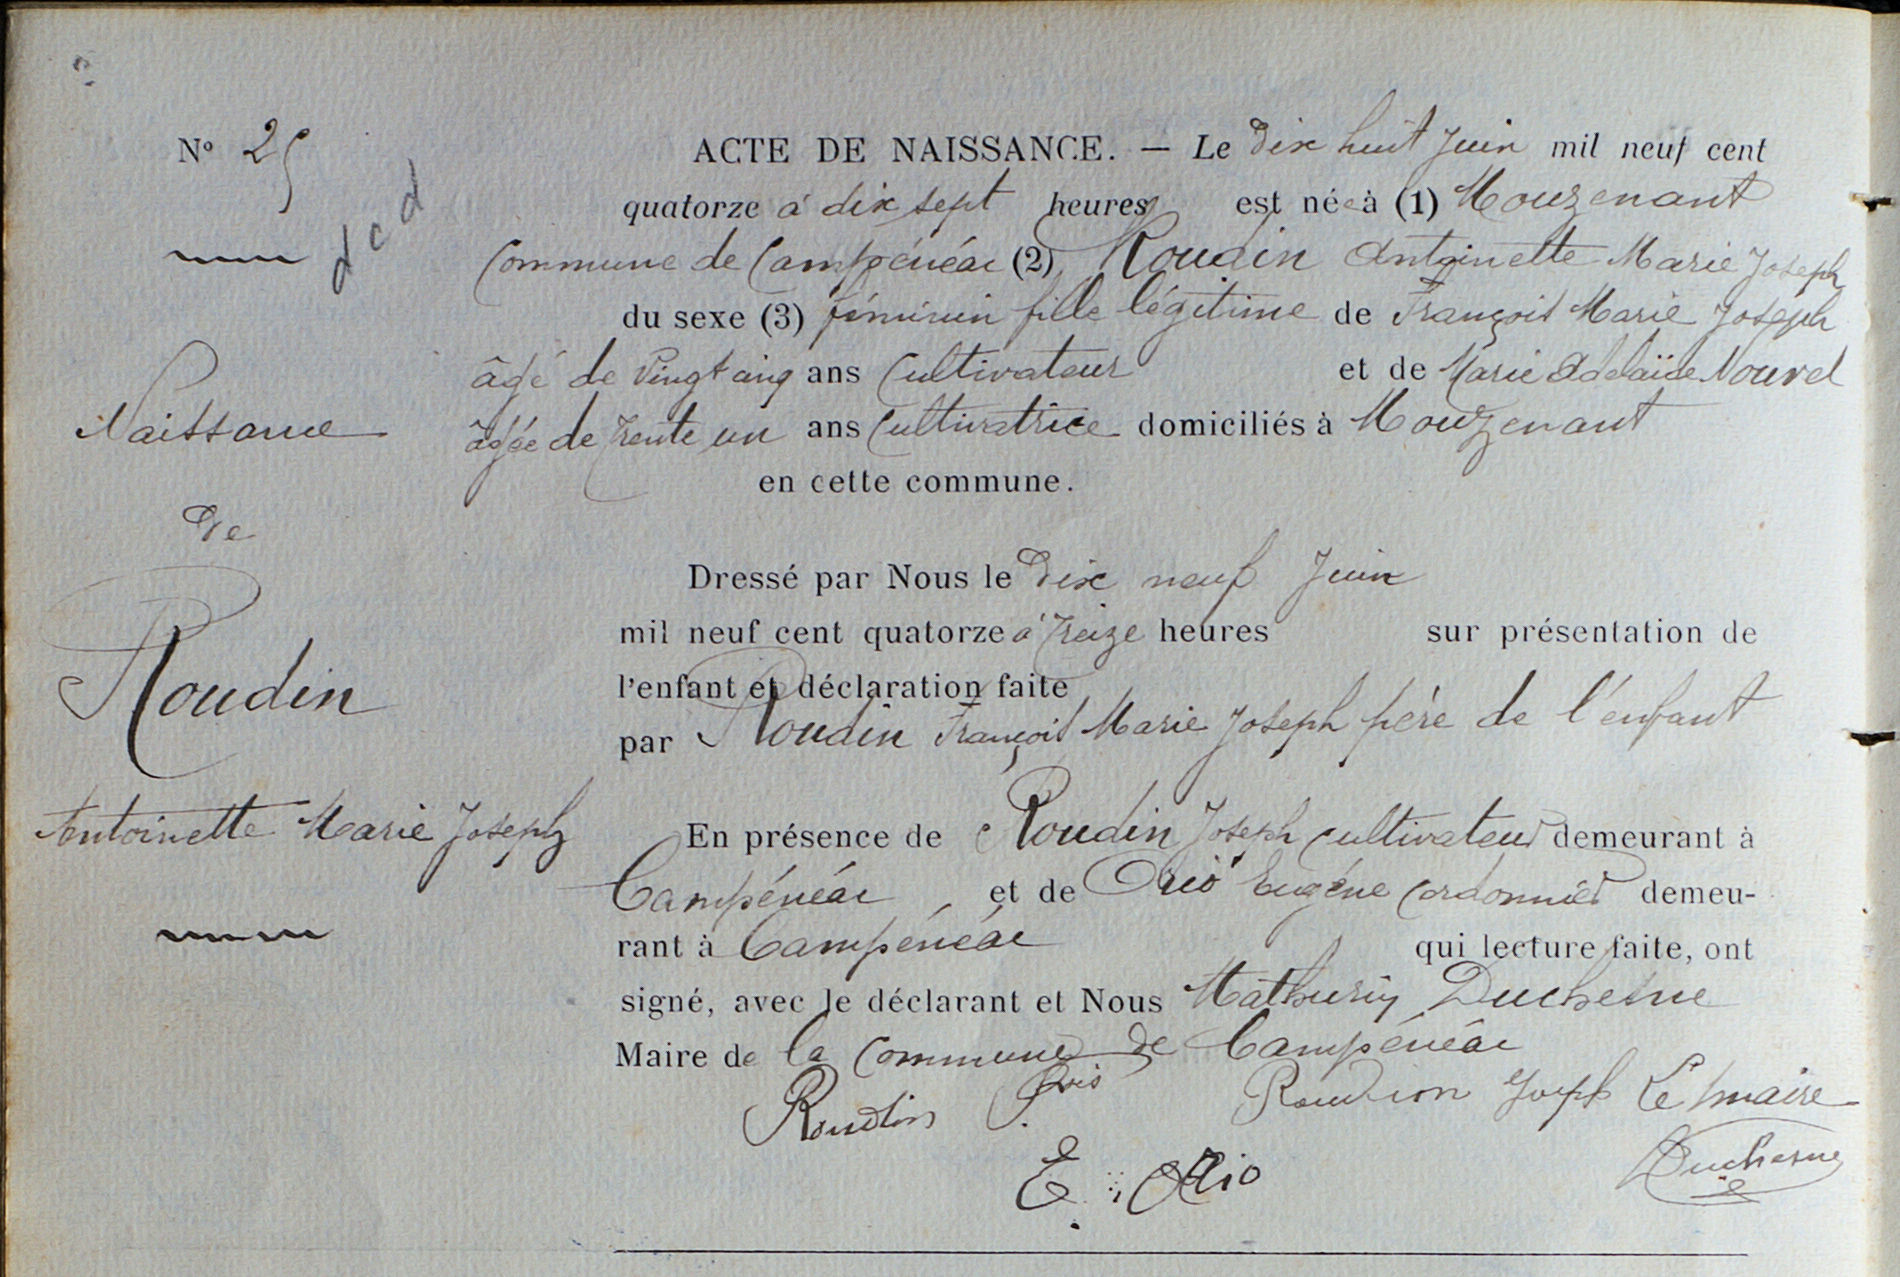 N° 25
dcd
Naissance
de
Roudin
Antoinette Marie Joseph
ACTE DE NAISSANCE. — Le dix huit Juin mil neuf cent
quatorze à dix sept heures est née à (1) Mouzenant
Commune de Campénéac (2) Roudin Antoinette Marie Joseph
du sexe (3) féminin fille légitime de François Marie Joseph
âgé de Vingt cinq ans Cultivateur et de Marie Adelaïde Nouvel
âgée de trente un ans Cultivatrice domiciliés à Mouzenant
en cette commune.
Dressé par Nous le dix neuf Juin
mil neuf cent quatorze à treize heures sur présentation de
l'enfant et déclaration faite
par Roudin François Marie Joseph père de l'enfant
En présence de Roudin Joseph Cultivateur demeurant à
Campénéac et de Orio Eugène Cordonnier demeu-
rant à Campénéac qui lecture faite, ont
signé, avec le déclarant et Nous Mathurin Duchesne
Maire de la Commune de Campénéac
Roudin Roudion Joseph Le maire
E. Orio Duchesne